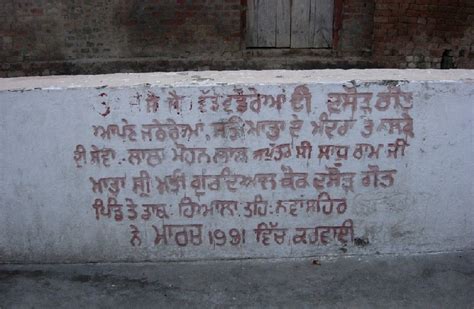 ਨੇ ਜੀ ਵੱਡੇ ਵਡੇਰੇਆਂ ਦੀ
ਆਪਣੇ ਜਠੇਰੇਆਂ ਸਤੀ ਮਾਤਾ ਦੇ ਮੰਦਰ ਤੇ
ਦੀ ਸੇਵਾ ਲਾਲਾ ਮੋਹਨ ਲਾਲ ਸਪੁੱਤਰ ਸ੍ਰੀ ਸਾਧੂ ਰਾਮ ਜੀ
ਮਾਤਾ ਸ੍ਰੀ ਮਤੀ ਗੁਰਦਿਆਲ ਕੌਰ ਦਸੌੜ ਗੋਤ
ਪਿੰਡ ਤੇ ਡਾਕ: ਹਿਆਲਾ ਤਹਿ: ਨਵਾਂਸ਼ਹਿਰ
ਨੇ ਮਾਰਚ 1991 ਵਿੱਚ ਕਰਵਾਈ